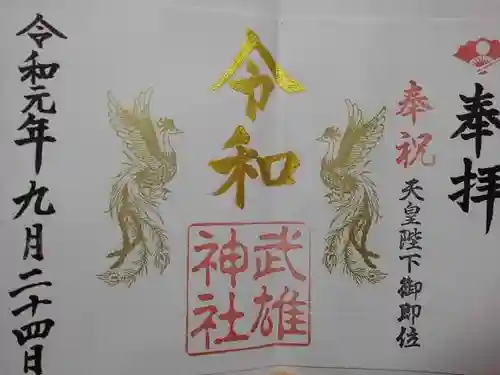 奉拝
奉祝
天皇陛下御即位
令和
武雄
神社
令和元年九月二十四日